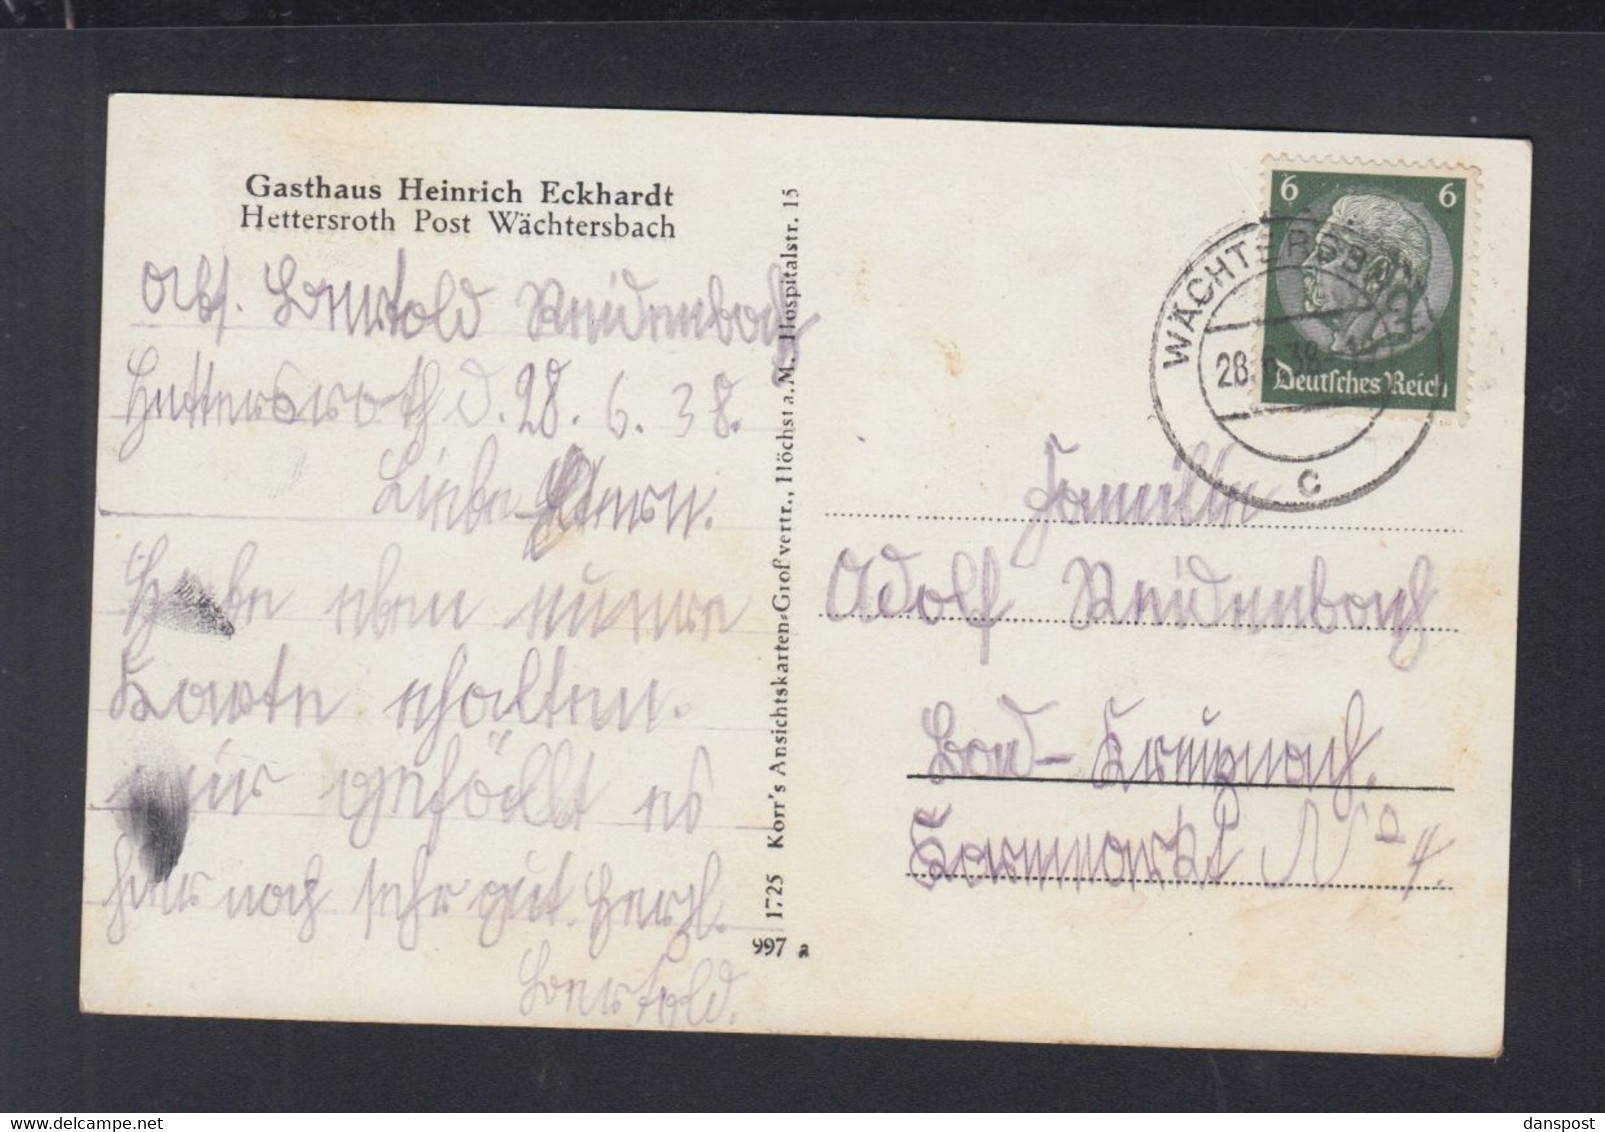 Gasthaus Heinrich Eckhardt
Hettersroth Post Wächtersbach
Abs. Bertold Reidenbach
Hettersroth d. 28. 6. 38.
Liebe Eltern.
Habe eben eure
Karte erhalten.
mir gefällt es
hier noch sehr gut. Herzl.
Bertold.
Korr's Ansichtskarten-Großvertr., Höchst a. M., Hospitalstr. 15
1725
997 a
6 6
Deutsches Reich
WÄCHTERSBACH
28.6.38
c
Familie
Adolf Reidenbach
Bad-Kreuznach.
Kornmarkt No 4.
danspost